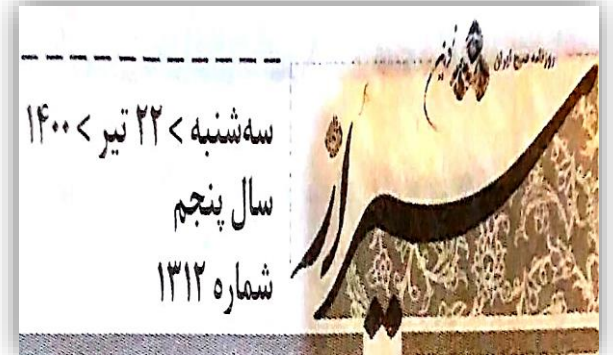 روزنامه صبح ایران
سه‌شنبه > ۲۲ تیر > ۱۴۰۰
سال پنجم
شماره ۱۳۱۲